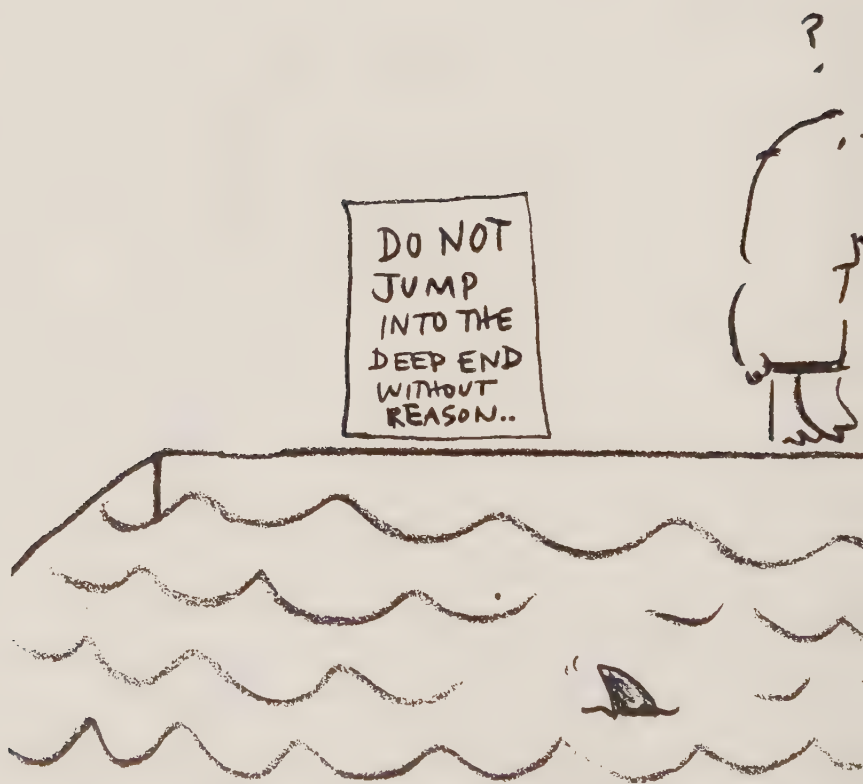 ?
DO NOT
JUMP
INTO THE
DEEP END
WITHOUT
REASON..